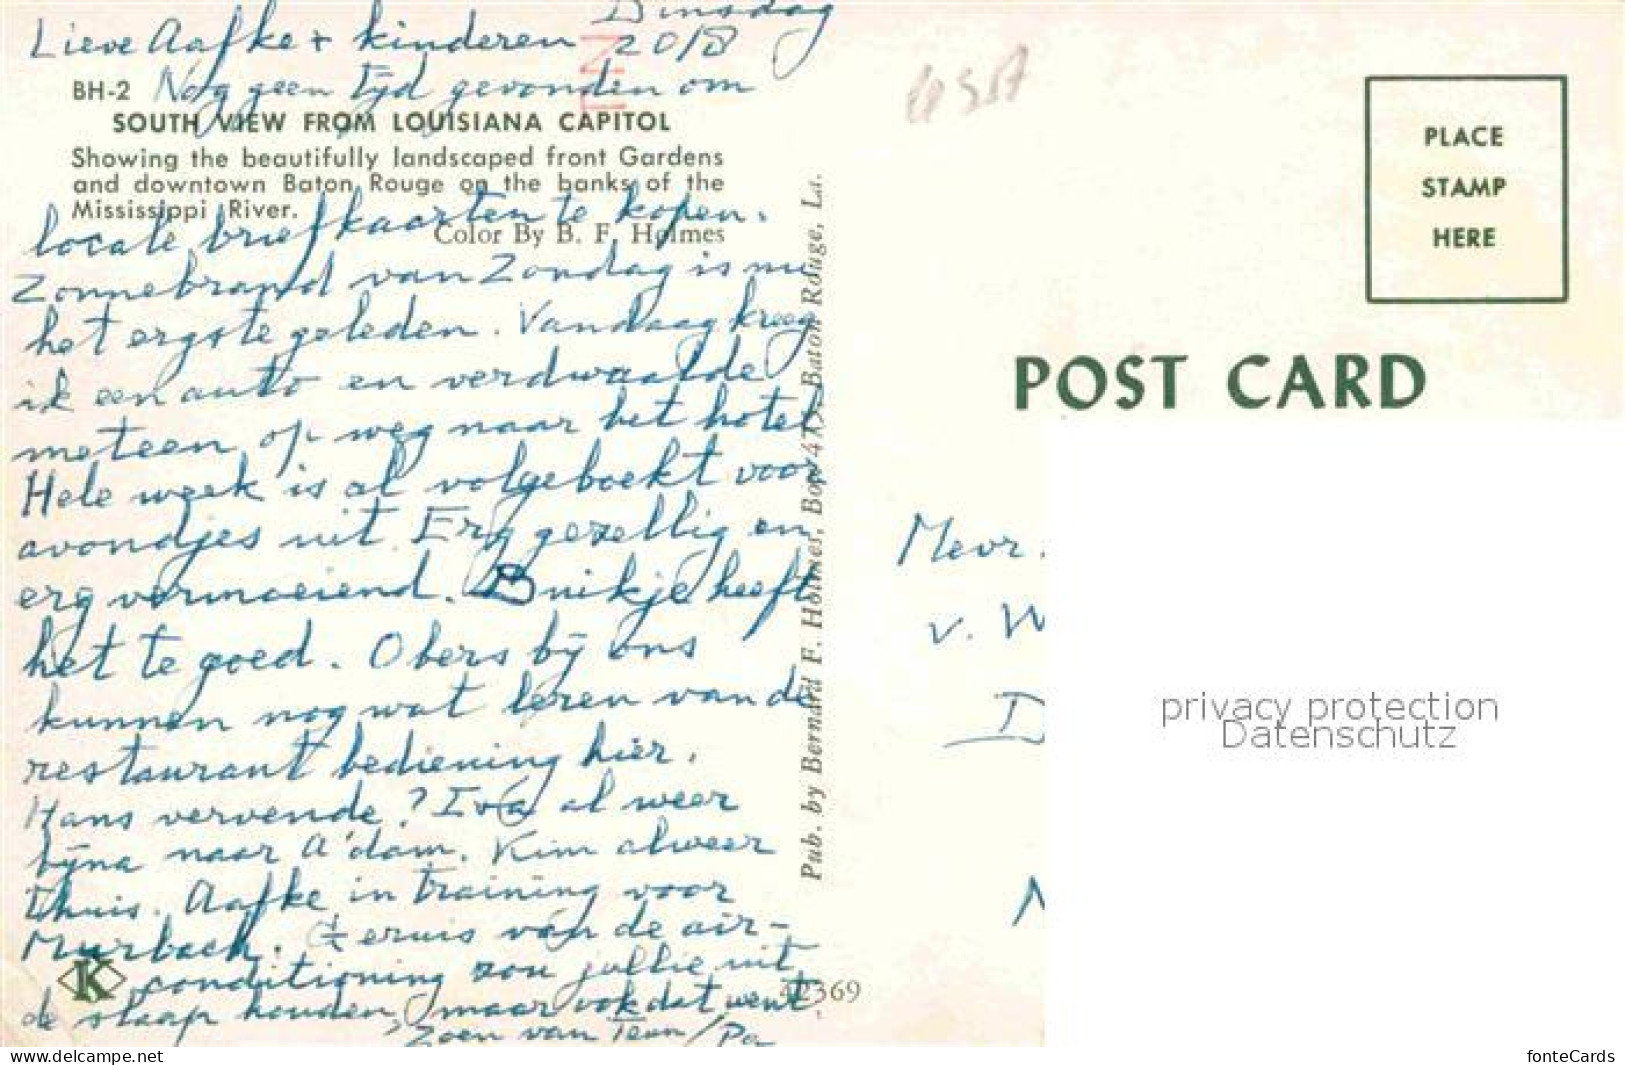 Dinsdag
Lieve Aafke + kinderen 20/8
BH-2 Nog geen tijd gevonden om
SOUTH VIEW FROM LOUISIANA CAPITOL
Showing the beautifully landscaped front Gardens
and downtown Baton Rouge on the banks of the
Mississippi River.
Color By B. F. Holmes
locale briefkaarten te kopen.
Zonnebrand van Zondag is nu
het ergste geleden. Vandaag kreeg
ik een auto en verdwaalde
meteen op weg naar het hotel
Hele week is al volgeboekt voor
avondjes uit. Erg gezellig en
erg vermoeiend. Buikje heeft
het te goed. Obers bij ons
kunnen nog wat leren van de
restaurant bediening hier.
Hans vervende? Iva al weer
bijna naar A'dam. Kim alweer
thuis. Aafke in training voor
Murbach. Geruis van de air-
conditioning zou jullie uit
de slaap houden, maar ook dat went.
Zoen van Teun / Pa
Pub. by Bernard F. Holmes, Box 475, Baton Rouge, La.
K
42369
PLACE
STAMP
HERE
POST CARD
Mevr.
v. W
privacy protection
Datenschutz
https://www.delcampe.net/en_US/collectibles/memento.com
fonteCards